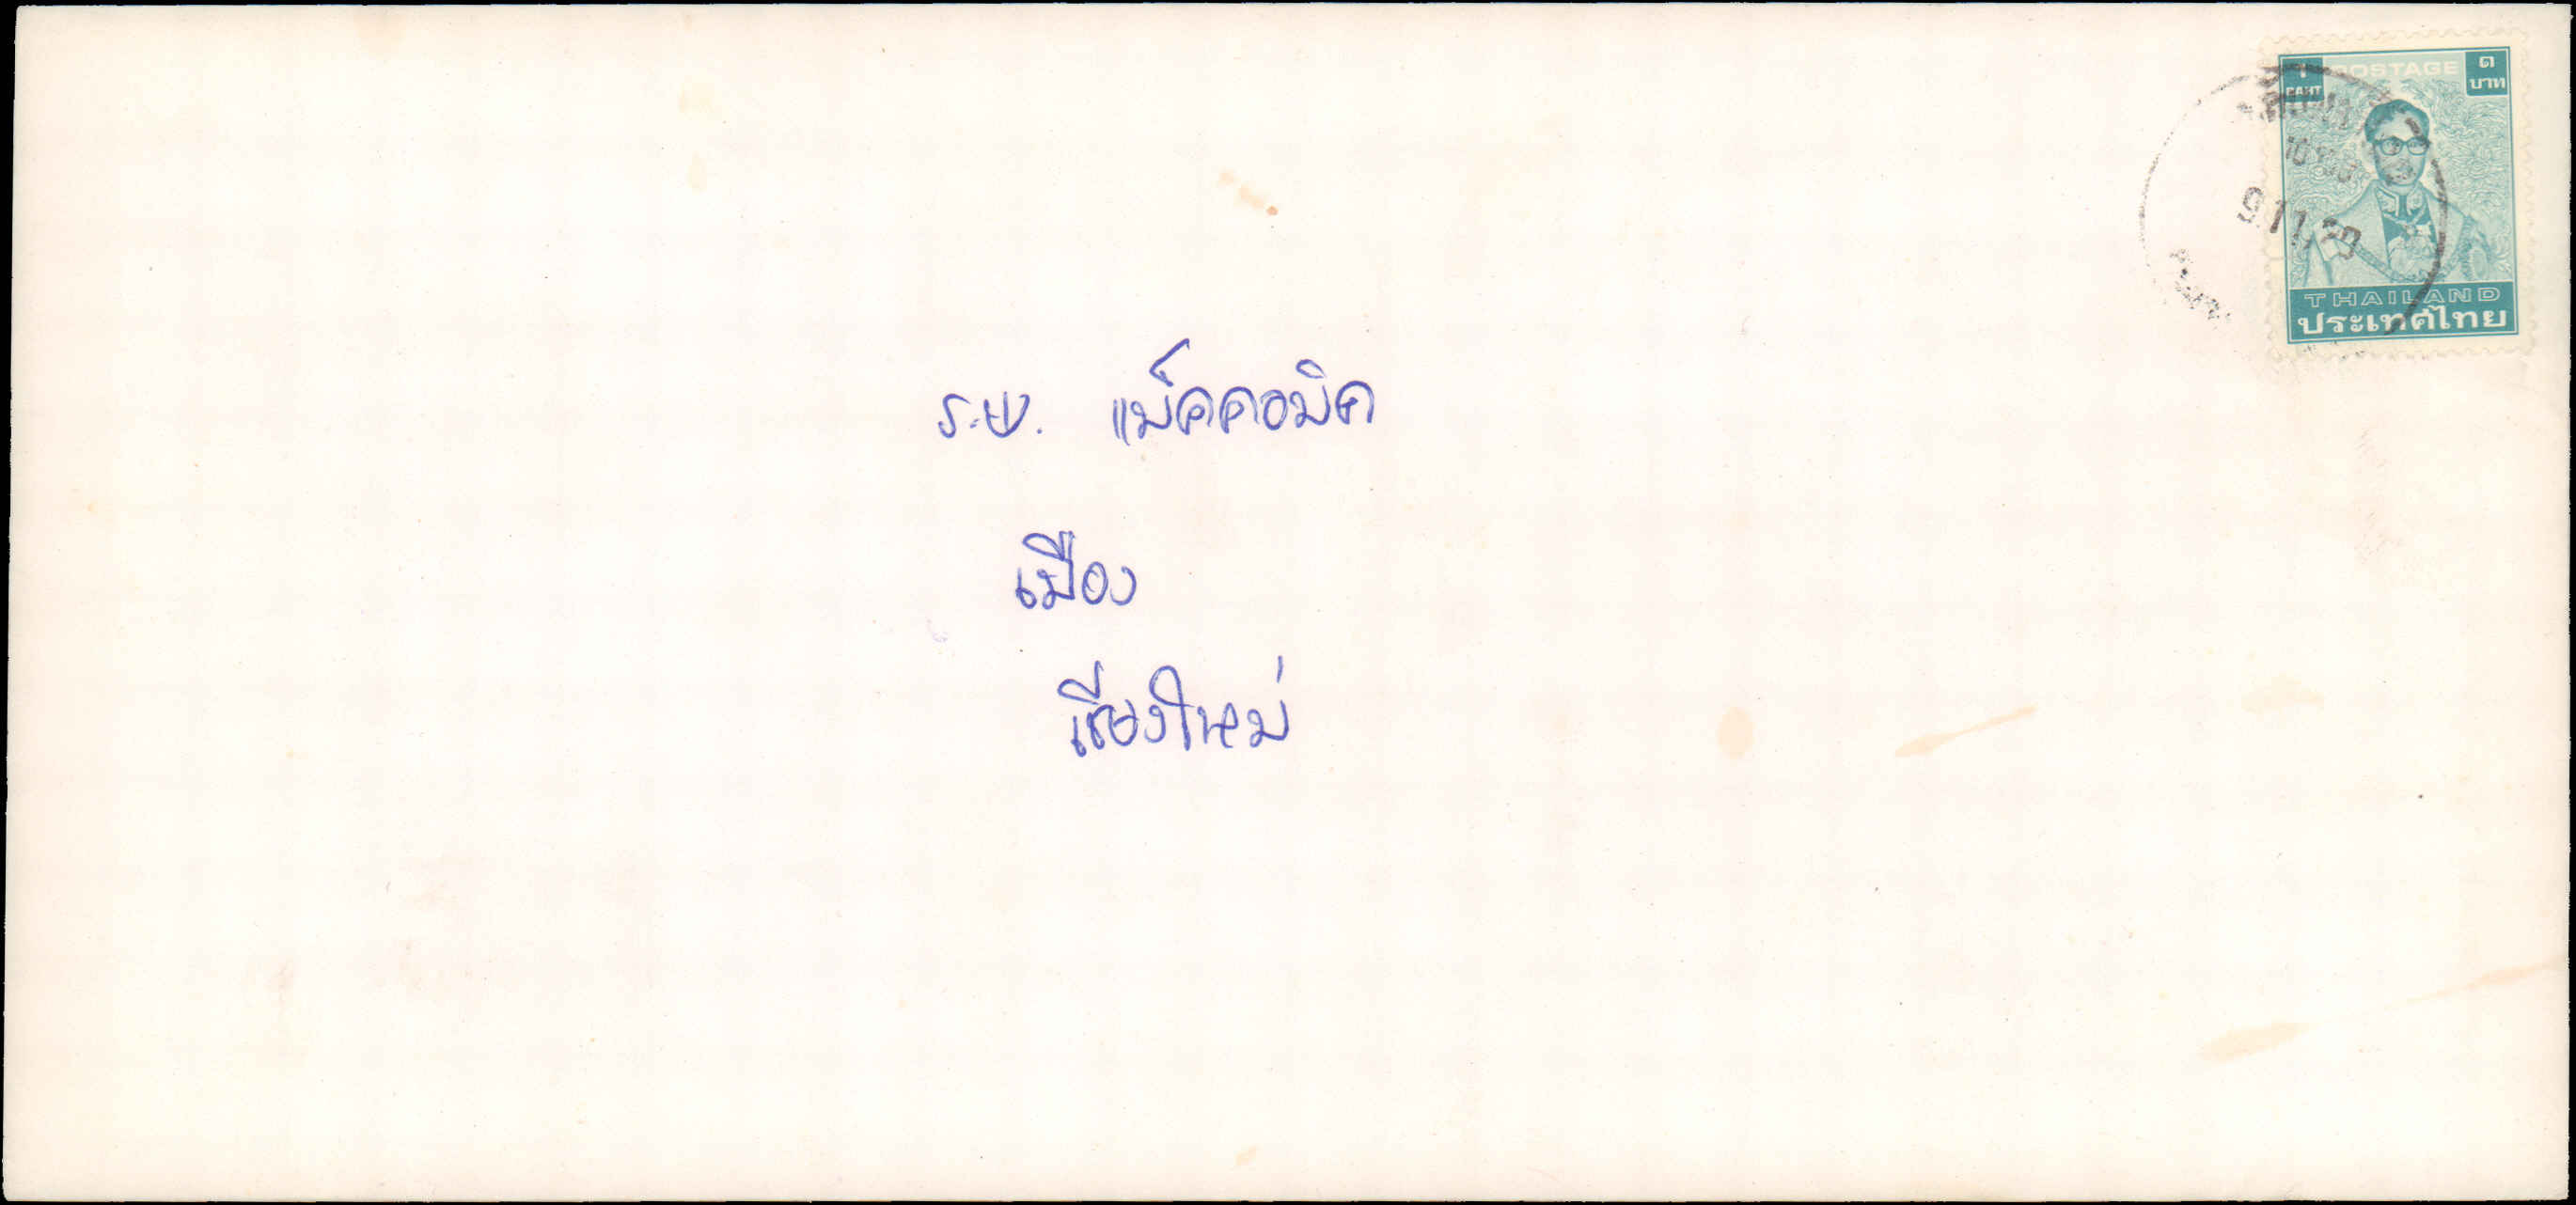 1 POSTAGE ๑
BAHT บาท
THAILAND
ประเทศไทย
ร.พ. แม็คคอมิค
เมือง
เชียงใหม่